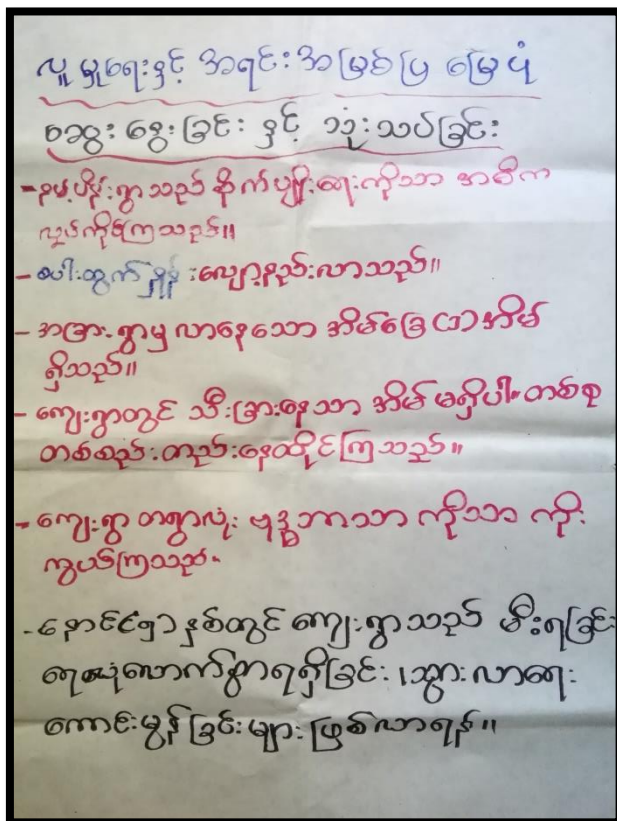 လူမှုရေးနှင့် အရင်းအမြစ်ပြ မြေပုံ
ဆွေးနွေးခြင်း နှင့် သုံးသပ်ခြင်း
- နမ့်ပိန်းရွာသည် စိုက်ပျိုးရေးကိုသာ အဓိက
လုပ်ကိုင်ကြသည်။
- ပေါ်ထွက်နှုန်းလျော့နည်းလာသည်။
- အခြားရွာမှ လာနေသော အိမ်ခြေ (၁) အိမ်
ရှိသည်။
- ကျေးရွာတွင် သီးခြားနေသော အိမ် မရှိပါ။ တစ်စု
တစ်စည်းတည်းနေထိုင်ကြသည်။
- ကျေးရွာ တရွာလုံး ဗုဒ္ဓဘာသာ ကိုသာ ကိုး
ကွယ်ကြသည်။
- နောင် နှစ်တွင် ကျေးရွာသည် မီးရခြင်း
ရေ လောက်စွာရရှိခြင်း ၊ သွားလာရေး
ကောင်းမွန်ခြင်းများ ဖြစ်လာရန်။